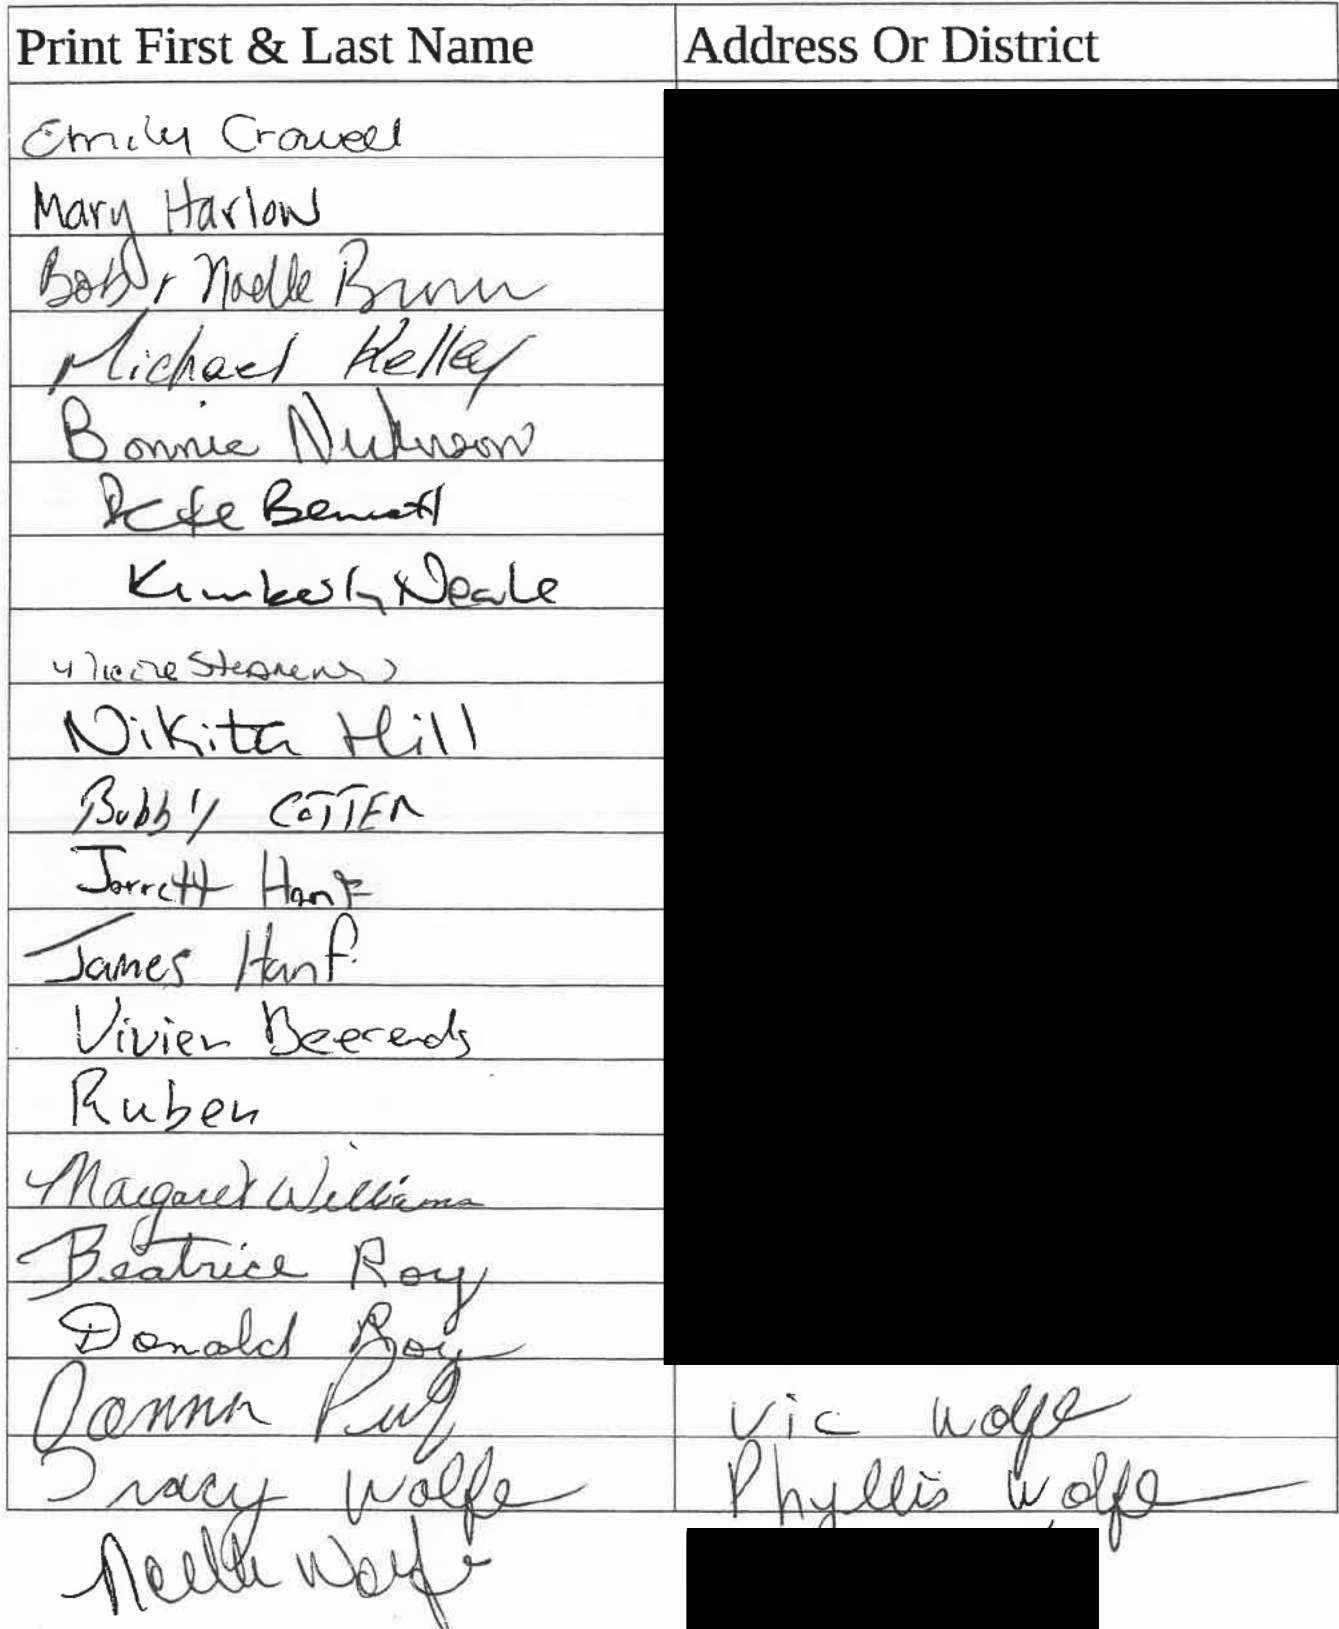 Print First & Last Name Address Or District
Emily Crowell
Mary Harlow
Bob & Noelle Brunn
Michael Kelley
Bonnie
Pete Bennett
Kimberly Neale
Nikita Hill
Bobby COTTER
Jarrett Hanf
James Hanf
Vivien Beerends
Ruben
Margaret Williams
Beatrice Roy
Donald Roy
Vic Wolfe
Tracy Wolfe Phyllis Wolfe
Noelle Wolfe